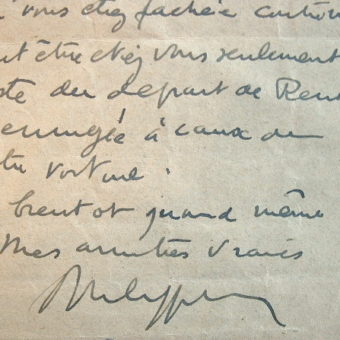 vous étiez fachée contre
ut être etiez vous seulement
ste du départ de René
ennuyée à cause de
tre voiture.
bientot quand même
mes amitiés vraies
Philippe